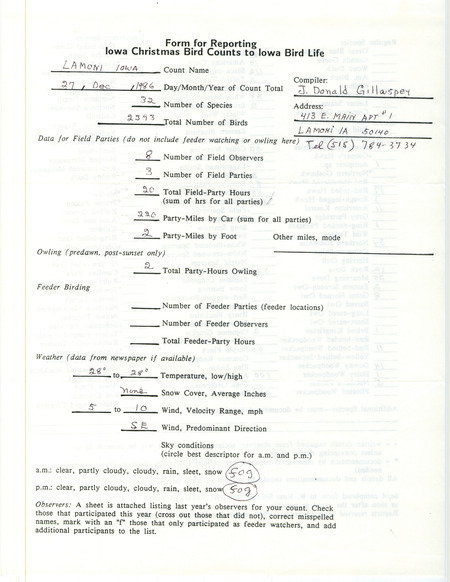 Form for Reporting
Iowa Christmas Bird Counts to Iowa Bird Life
LAMONI IOWA Count Name
27, Dec, 1986 Day/Month/Year of Count Total
Compiler:
J. Donald Gillaspey
32 Number of Species
Address:
413 E. MAIN APT #1
2393 Total Number of Birds
LAMONI IA 50140
Data for Field Parties (do not include feeder watching or owling here) Tel (515) 784-3734
8 Number of Field Observers
3 Number of Field Parties
20 Total Field-Party Hours
(sum of hrs for all parties)
220 Party-Miles by Car (sum for all parties)
2 Party-Miles by Foot Other miles, mode
Owling (predawn, post-sunset only)
2 Total Party-Hours Owling
Feeder Birding
Number of Feeder Parties (feeder locations)
Number of Feeder Observers
Total Feeder-Party Hours
Weather (data from newspaper if available)
28° to 28° Temperature, low/high
None Snow Cover, Average Inches
5 to 10 Wind, Velocity Range, mph
SE Wind, Predominant Direction
Sky conditions
(circle best descriptor for a.m. and p.m.)
a.m.: clear, partly cloudy, cloudy, rain, sleet, snow fog
p.m.: clear, partly cloudy, cloudy, rain, sleet, snow fog
Observers: A sheet is attached listing last year's observers for your count. Check
those that participated this year (cross out those that did not), correct misspelled
names, mark with an "f" those that only participated as feeder watchers, and add
additional participants to the list.